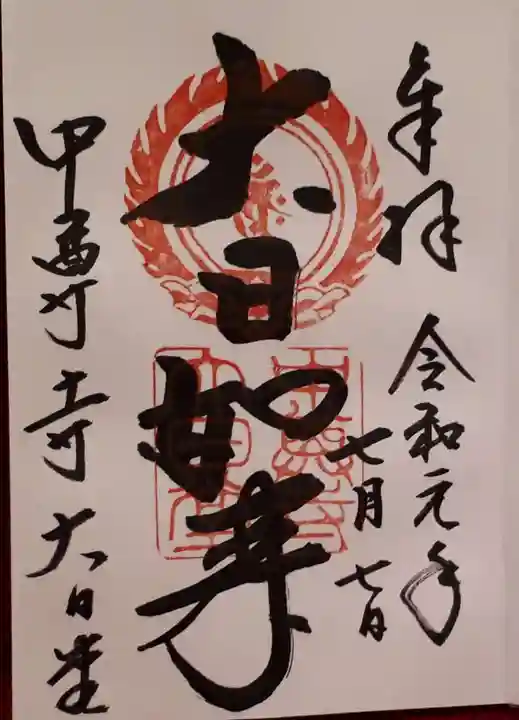 奉拝
令和元年
七月七日
大日如来
甲興寺
大日堂